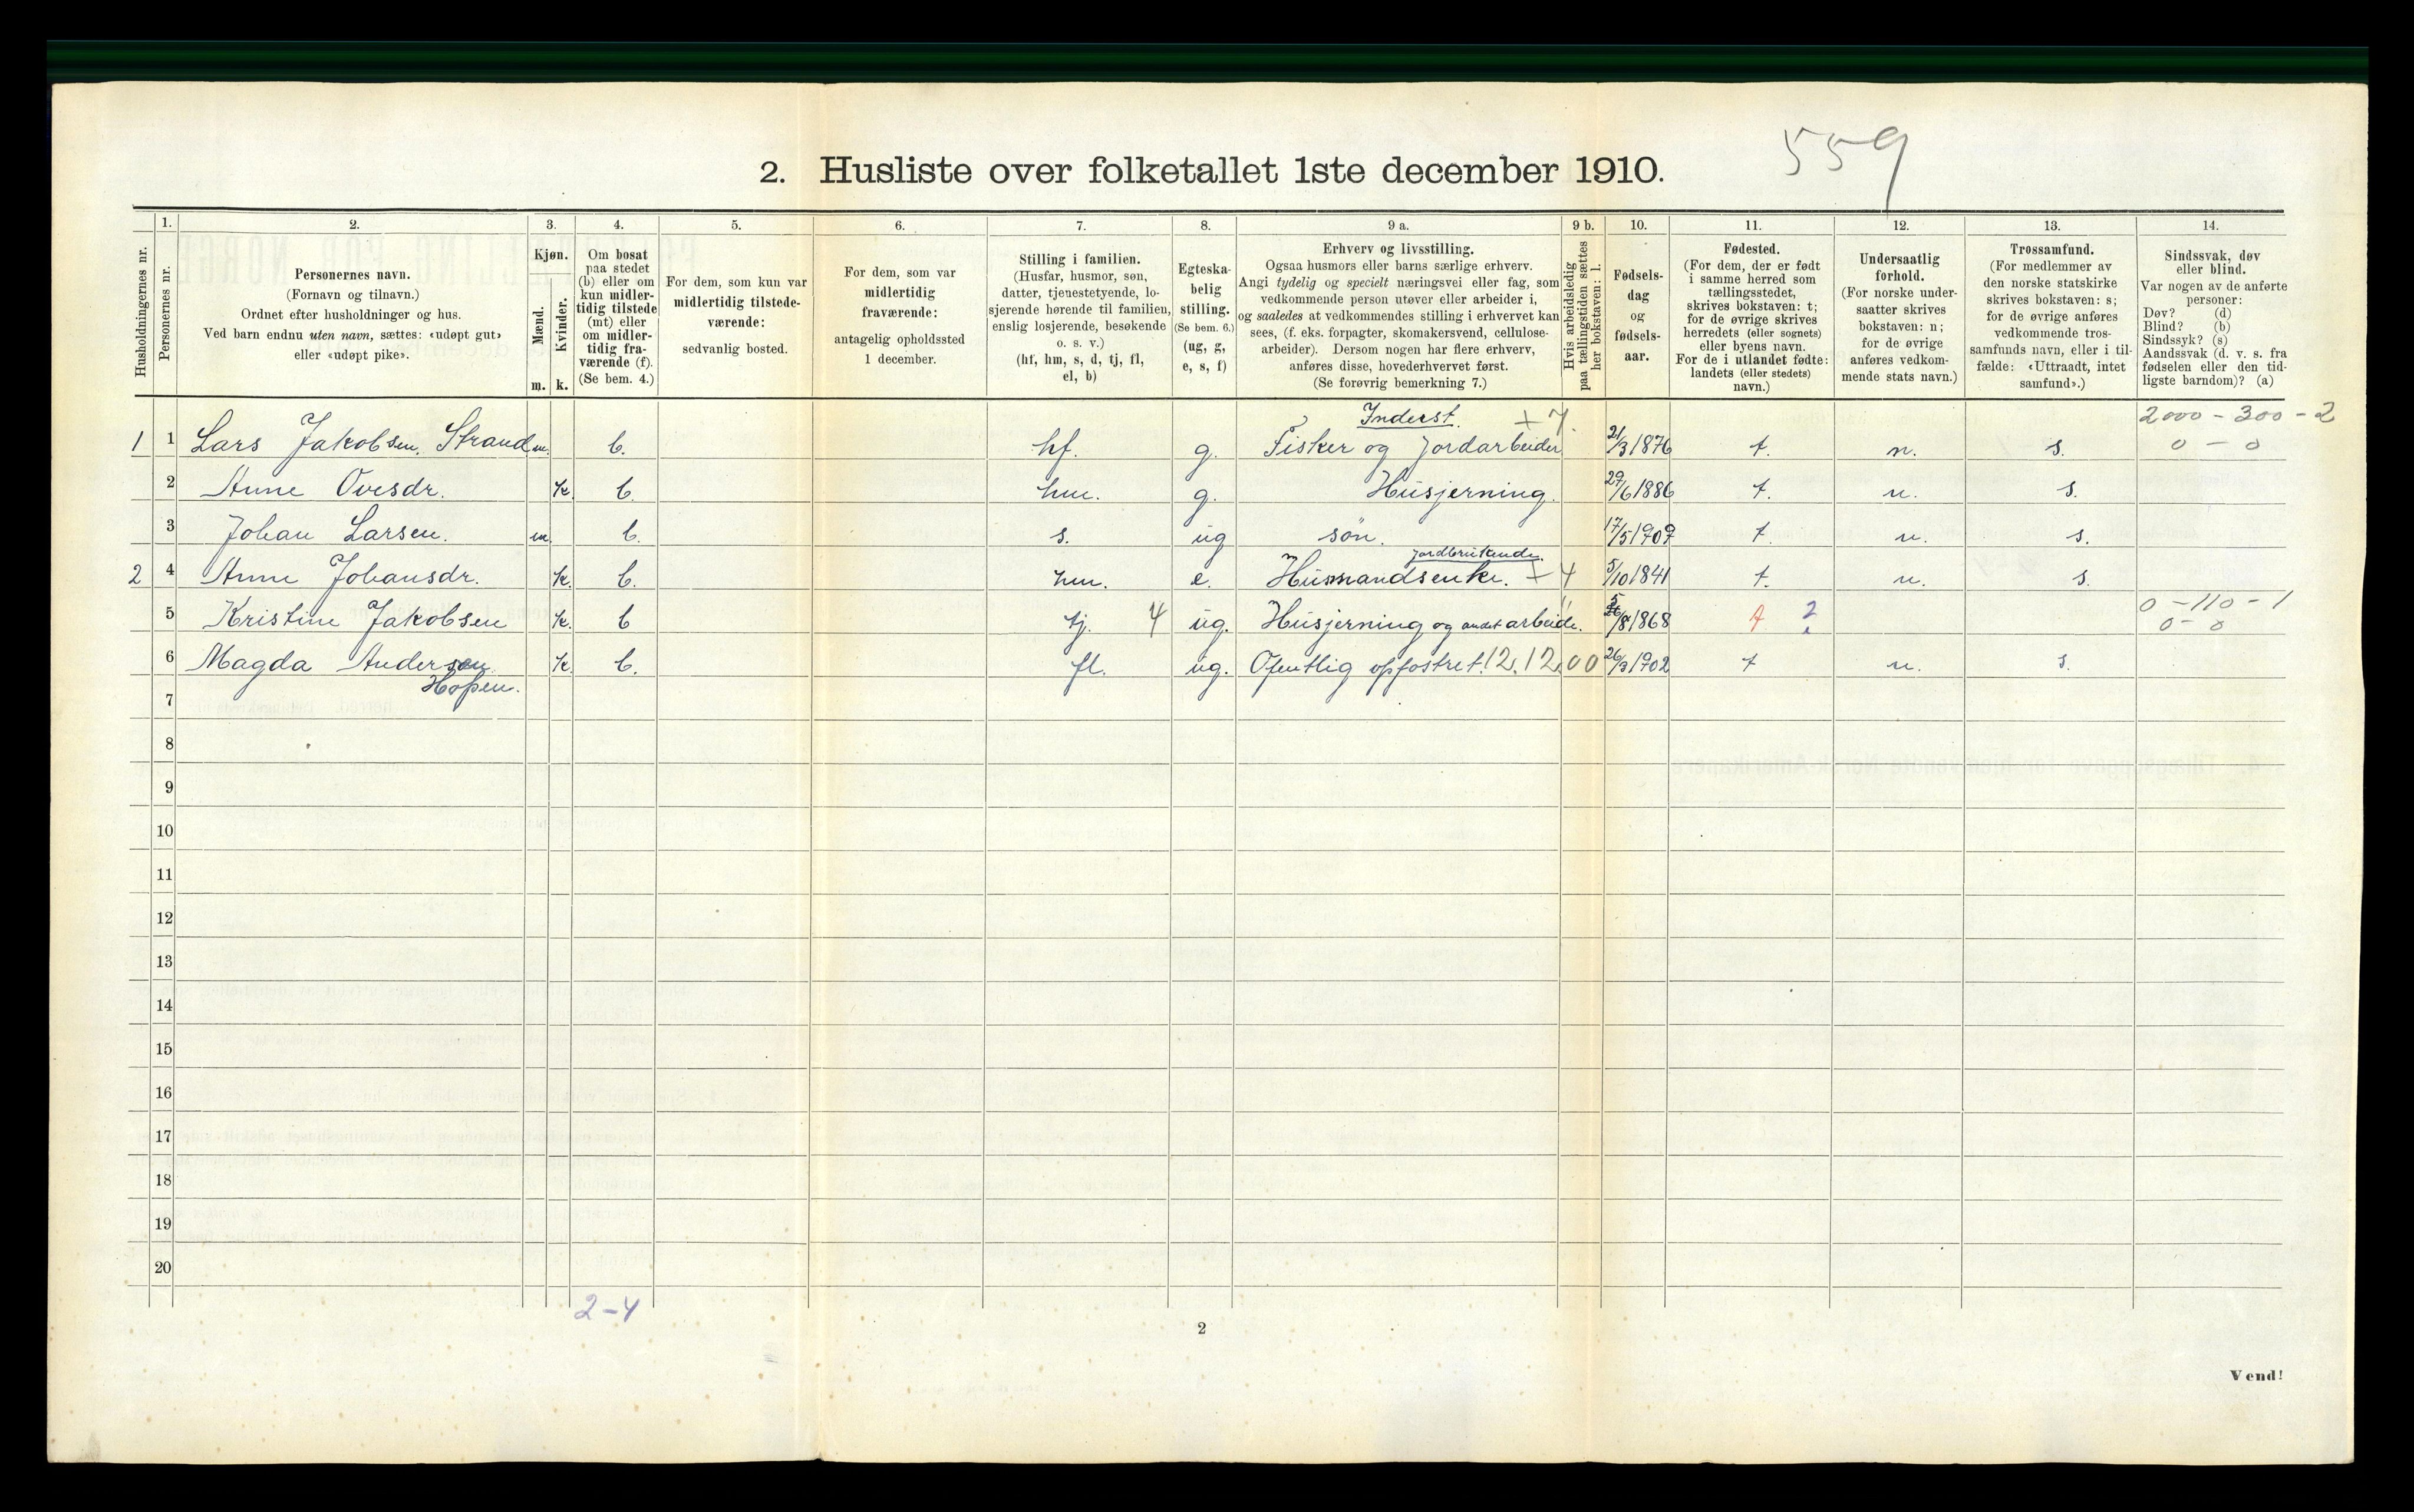 559
2. Husliste over folketallet 1ste december 1910.
Husholdningernes nr.
1.
Personernes nr.
2.
Personernes navn.
(Fornavn og tilnavn.)
Ordnet efter husholdninger og hus.
Ved barn endnu uten navn, sættes: «udøpt gut»
eller «udøpt pike».
3.
Kjøn.
Mænd.
Kvinder.
m. k.
4.
Om bosat
paa stedet
(b) eller om
kun midler-
tidig tilstede
(mt) eller
om midler-
tidig fra-
værende (f).
(Se bem. 4.)
5.
For dem, som kun var
midlertidig tilstede-
værende:
sedvanlig bosted.
6.
For dem, som var
midlertidig
fraværende:
antagelig opholdssted
1 december.
7.
Stilling i familien.
(Husfar, husmor, søn,
datter, tjenestetyende, lo-
sjerende hørende til familien,
enslig losjerende, besøkende
o. s. v.)
(hf, hm, s, d, tj, fl,
el, b)
8.
Egteska-
belig
stilling.
(Se bem. 6.)
(ug, g,
e, s, f)
9 a.
Erhverv og livsstilling.
Ogsaa husmors eller barns særlige erhverv.
Angi tydelig og specielt næringsvei eller fag, som
vedkommende person utøver eller arbeider i,
og saaledes at vedkommendes stilling i erhvervet kan
sees, (f. eks. forpagter, skomakersvend, cellulose-
arbeider). Dersom nogen har flere erhverv,
anføres disse, hovederhvervet først.
(Se forøvrig bemerkning 7.)
9 b.
Hvis arbeidsledig
paa tællingstiden sættes
her bokstaven: l.
10.
Fødsels-
dag
og
fødsels-
aar.
11.
Fødested.
(For dem, der er født
i samme herred som
tællingsstedet,
skrives bokstaven: t;
for de øvrige skrives
herredets (eller sognets)
eller byens navn.
For de i utlandet fødte:
landets (eller stedets)
navn.)
12.
Undersaatlig
forhold.
(For norske under-
saatter skrives
bokstaven: n;
for de øvrige
anføres vedkom-
mende stats navn.)
13.
Trossamfund.
(For medlemmer av
den norske statskirke
skrives bokstaven: s;
for de øvrige anføres
vedkommende tros-
samfunds navn, eller i til-
fælde: «Uttraadt, intet
samfund».)
14.
Sindssvak, døv
eller blind.
Var nogen av de anførte
personer:
Døv? (d)
Blind? (b)
Sindssyk? (s)
Aandssvak (d. v. s. fra
fødselen eller den tid-
ligste barndom)? (a)
Inderst. + 7. 2000 - 300 - 2
1 1 Lars Jakobsen Strand m. b. hf. g. Fisker og Jordarbeider 21/3 1876 t. n. s. 0 - 0
2 Anne Ovesdr. k. b. hm. g. Husjerning. 29/6 1886 t. n. s.
3 Johan Larsen. m. b. s. ug søn. 17/5 1907 t. n. s.
jordbrukende
2 4 Anne Johansdr. k. b. hm. e. Husmandsenke. + 4 5/10 1841 t. n. s.
0 - 110 - 1
5 Kristine Jakobsen k. b tj. 4 ug. Husjerning og andet arbeide. /8 1868 t 2 0 - 0
6 Magda Andersen k. b. fl. ug. Ofentlig opfostret. 12.12.00 26/3 1902 t n. s.
Hopen.
7
8
9
10
11
12
13
14
15
16
17
18
19
20
2-4
2
Vend!